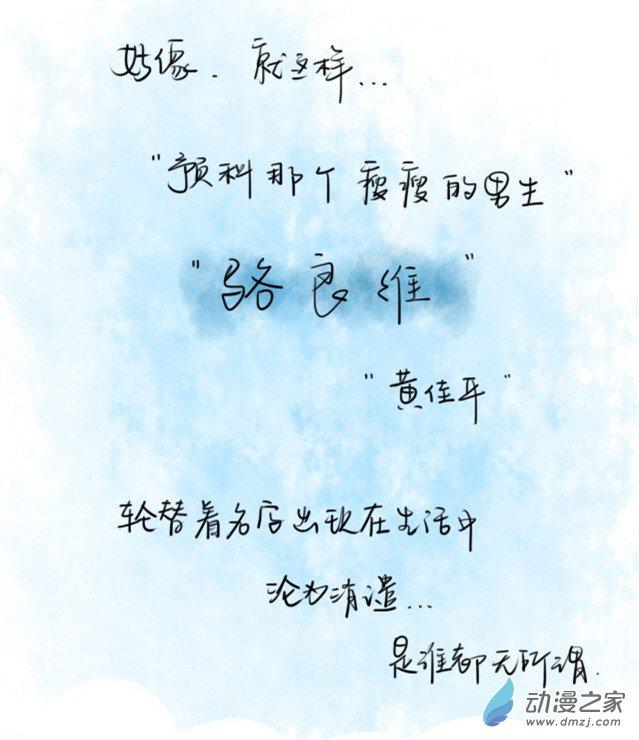 好像．就这样...
"预科那个瘦瘦的男生"
"骆良维"
"黄佳平"
轮替着名字出现在生活中
沦为消遣...
是谁都无所谓.
动漫之家
www.dmzj.com